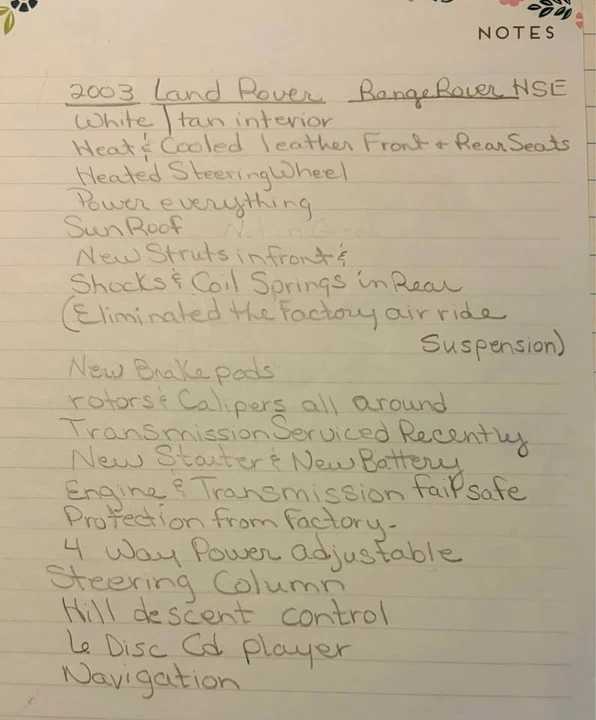 NOTES
2003 Land Rover Range Rover HSE
White / tan interior
Heat & Cooled leather Front + Rear Seats
Heated Steering Wheel
Power everything
Sun Roof
New Struts in front &
Shocks & Coil Springs in Rear
(Eliminated the factory air ride
Suspension)
New Brake pads
rotors & Calipers all around
Transmission Serviced Recently
New Starter & New Battery
Engine & Transmission fail safe
Protection from factory-
4 Way Power adjustable
Steering Column
Hill descent control
6 Disc Cd player
Navigation